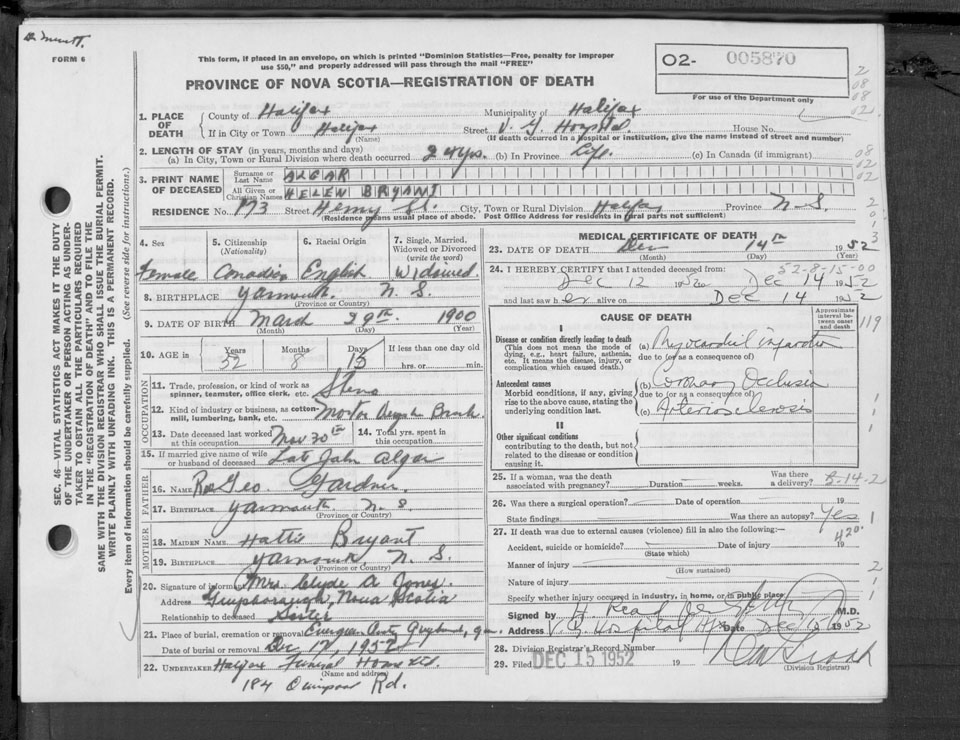 FORM 6
This form, if placed in an envelope, on which is printed "Dominion Statistics—Free, penalty for improper
use $50," and properly addressed will pass through the mail "FREE"
PROVINCE OF NOVA SCOTIA—REGISTRATION OF DEATH
O2- 005870
For use of the Department only
1. PLACE OF DEATH County of Halifax Municipality of Halifax
If in City or Town Halifax Street V. G. Hospital House No.
(Name) (If death occurred in a hospital or institution, give the name instead of street and number)
2. LENGTH OF STAY (in years, months and days)
(a) In City, Town or Rural Division where death occurred 24 yrs. (b) In Province Life. (c) In Canada (if immigrant)
3. PRINT NAME OF DECEASED Surname or Last Name ALGAR
All Given or Christian Names HELEN BRYANT
RESIDENCE No. 173 Street Henry St. City, Town or Rural Division Halifax Province N.S.
(Residence means usual place of abode. Post Office Address for residents in rural parts not sufficient)
4. Sex Female
5. Citizenship (Nationality) Canadian
6. Racial Origin English
7. Single, Married, Widowed or Divorced (write the word) Widowed
8. BIRTHPLACE Yarmouth N. S.
(Province or Country)
9. DATE OF BIRTH March 29th 1900
(Month) (Day) (Year)
10. AGE in Years 52 Months 8 Days 15 If less than one day old
hrs. or min.
OCCUPATION
11. Trade, profession, or kind of work as spinner, teamster, office clerk, etc. Steno
12. Kind of industry or business, as cotton-mill, lumbering, bank, etc. Motor
13. Date deceased last worked at this occupation Nov 30th
14. Total yrs. spent in this occupation
15. If married give name of wife or husband of deceased Late John Algar
FATHER
16. NAME Geo. Gardner
17. BIRTHPLACE Yarmouth N. S
(Province or Country)
MOTHER
18. MAIDEN NAME Hattie Bryant
19. BIRTHPLACE Yarmouth N. S.
(Province or Country)
20. Signature of informant Mrs. Clyde A Jones.
Address Guysborough, Nova Scotia
Relationship to deceased Sister
21. Place of burial, cremation or removal Evergreen
Date of burial or removal Dec 17, 1952
22. UNDERTAKER Halifax Funeral Home Ltd.
(Name and address)
184 Quinpool Rd.
MEDICAL CERTIFICATE OF DEATH
23. DATE OF DEATH Dec 14th 1952
(Month) (Day) (Year)
52-8-15-00
24. I HEREBY CERTIFY that I attended deceased from:
Dec 12 1952 to Dec 14 1952
and last saw her alive on Dec 14 1952
CAUSE OF DEATH
Approximate interval between onset and death
119
I
Disease or condition directly leading to death
(This does not mean the mode of dying, e.g., heart failure, asthenia, etc. It means the disease, injury, or complication which caused death.
(a) Myocardial infarction
due to (or as a consequence of)
Antecedent causes
Morbid conditions, if any, giving rise to the above cause, stating the underlying condition last.
(b) Coronary Occlusion
due to (or as a consequence of)
(c) Arteriosclerosis
II
Other significant conditions
contributing to the death, but not related to the disease or condition causing it.
25. If a woman, was the death associated with pregnancy? Duration weeks. Was there a delivery? 5-14-2
26. Was there a surgical operation? Date of operation 19
State findings Was there an autopsy? Yes
27. If death was due to external causes (violence) fill in also the following:—
420
Accident, suicide or homicide? Date of injury 19
(State which)
Manner of injury
(How sustained)
Nature of injury
Specify whether injury occurred in industry, in home, or in public place
Signed by M.D.
Address V. G. Hospital Hfx Date Dec 1952
28. Division Registrar's Record Number
29. Filed DEC 15 1952 19
(Division Registrar)
SEC. 46—VITAL STATISTICS ACT MAKES IT THE DUTY
OF THE UNDERTAKER OR PERSON ACTING AS UNDER-
TAKER TO OBTAIN ALL THE PARTICULARS REQUIRED
IN THE "REGISTRATION OF DEATH" AND TO FILE THE
SAME WITH THE DIVISION REGISTRAR WHO SHALL ISSUE THE BURIAL PERMIT.
WRITE PLAINLY WITH UNFADING INK. THIS IS A PERMANENT RECORD.
Every item of information should be carefully supplied. (See reverse side for instructions.)